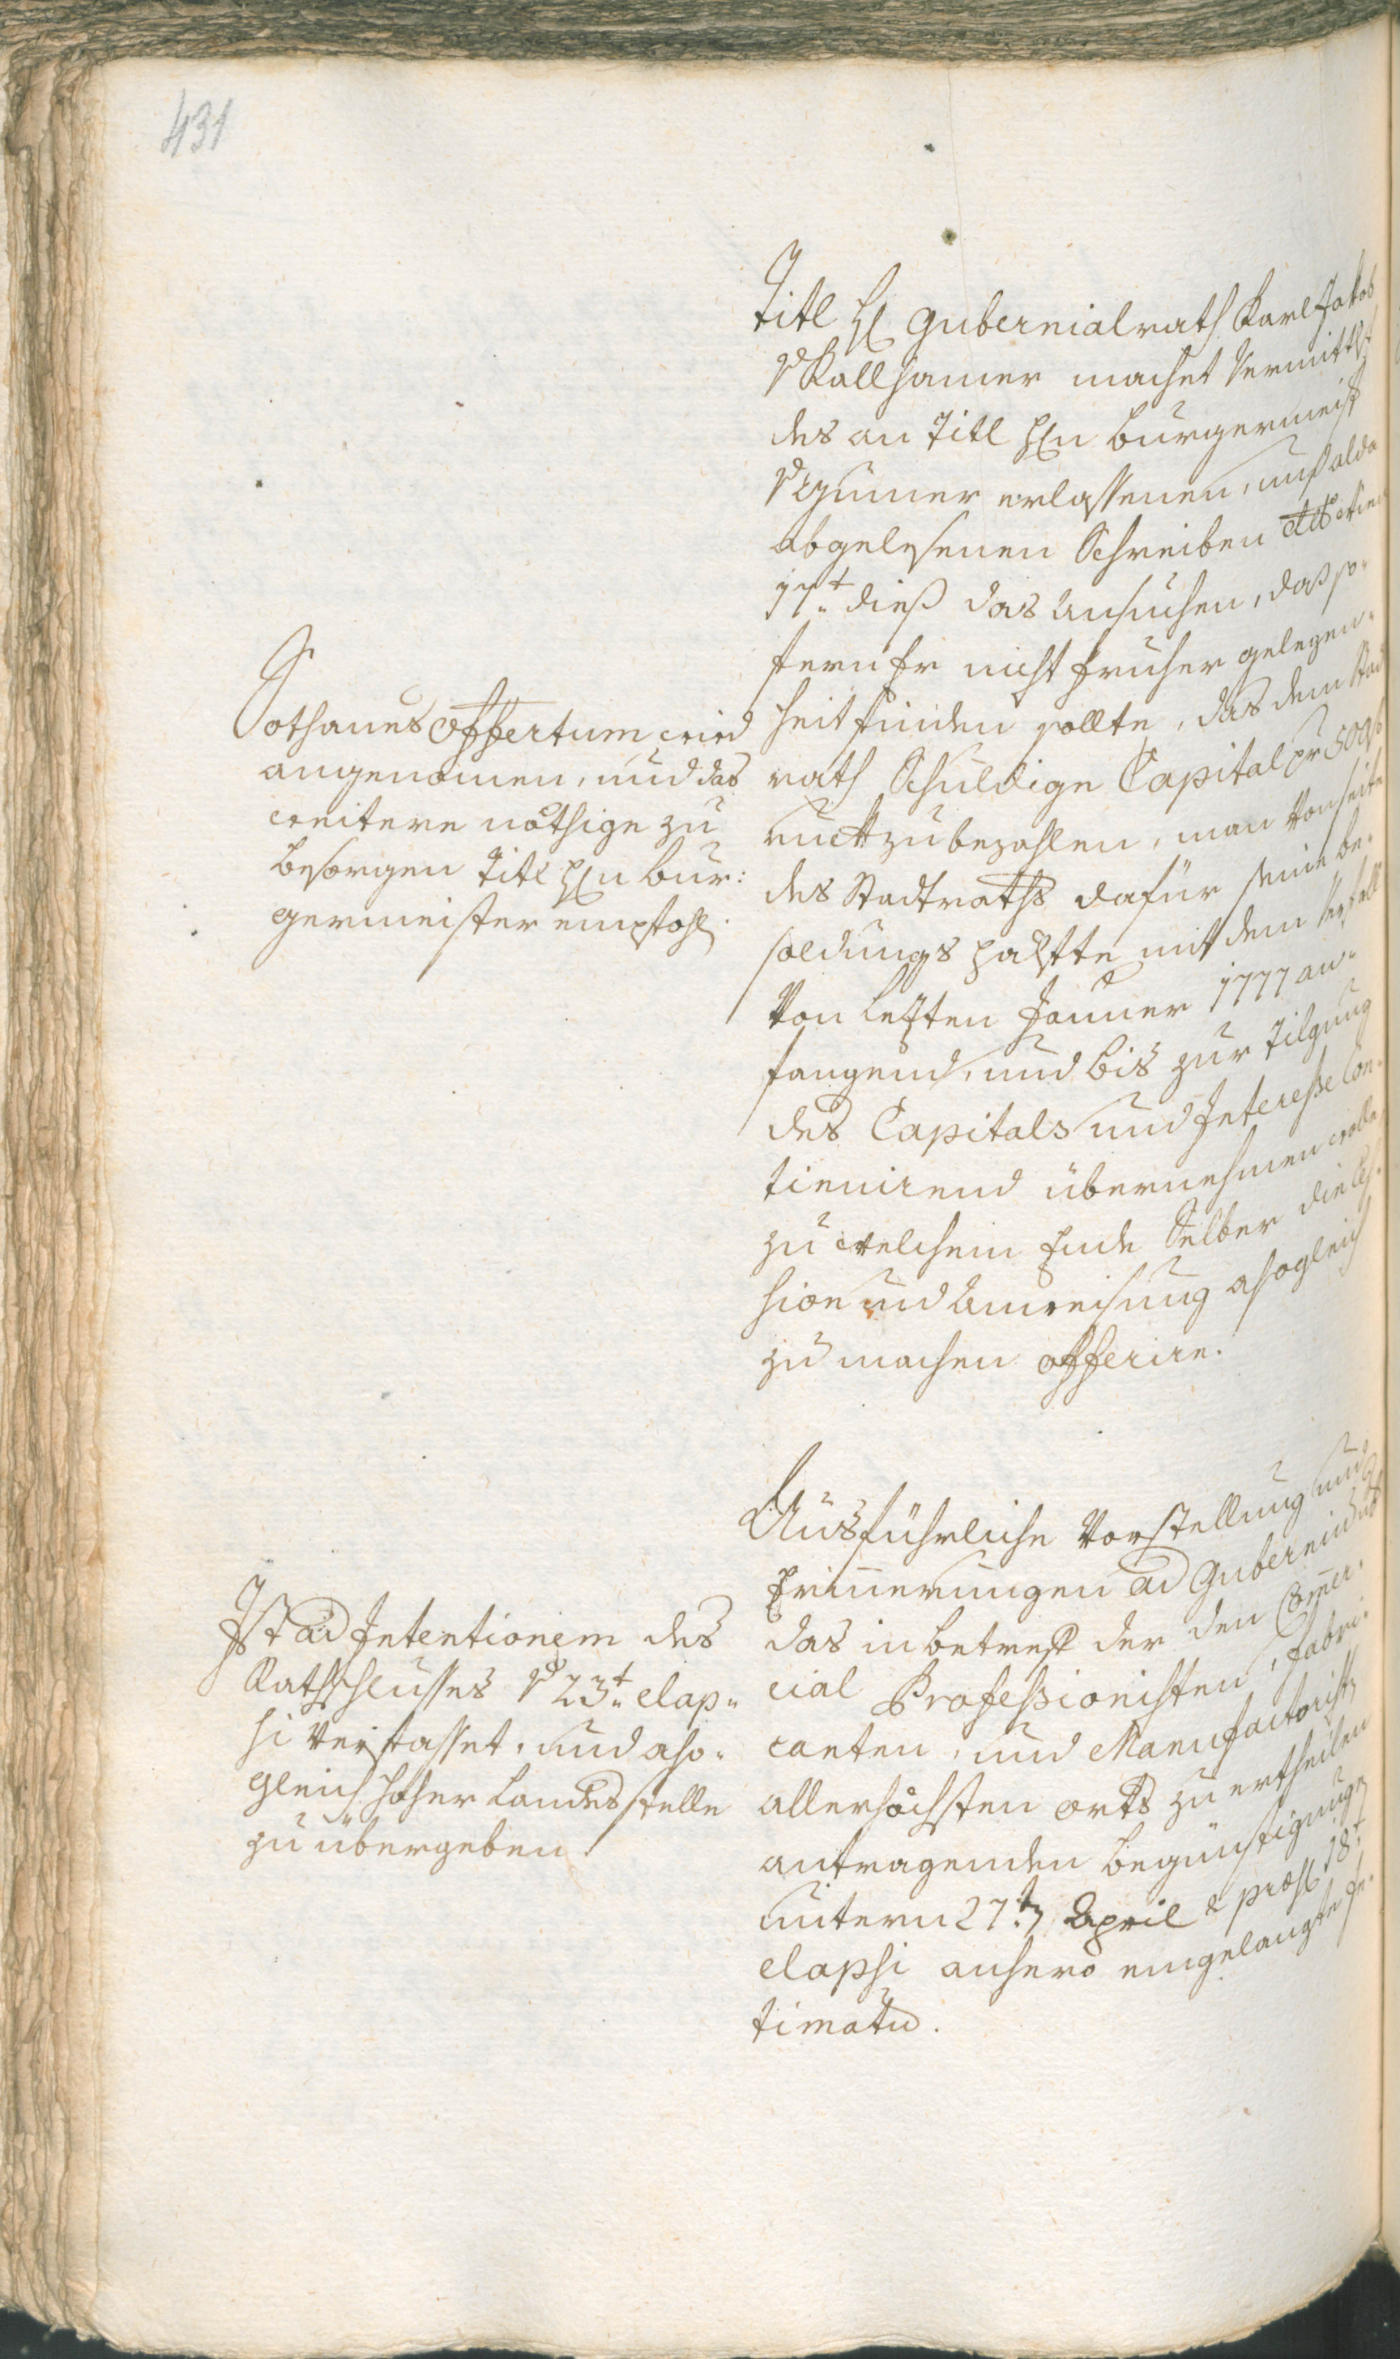 431
Titl H Gubernialrath Karl Jakob
v Kallhamer machet vermittlst
des an Titl Hn Burgermeist
v Egumer erlassenen, und alda
abgelesenen Schreiben
17t. dieß das Ansuchen, daß so¬
fern Er nicht früher gelegen¬
heit finden sollte, das dem Stad
rath Schuldige Capital pr 500f
ruckzubezahlen, man von seite
des Stadtraths dafür seine be¬
soldungs halfte mit dem Verfall
von lezten Jenner 1777 an¬
fangend, und bis zur Tilgung
des Capitals und Interesse Con¬
tinuirend übernehmen wolle
zu welchem Ende Selber die Ceß¬
sion und Anweisung asogleich
zu machen offerire.
Sothanes Offertum wird
angenomen, und das
weitere nöthige zu
besorgen Titl Hn Bur:
germeister empfohl.
Ausführliche Vorstellung und
Erinnerungen ad Gubernium
das in betreff der den Comer¬
cial Professionisten, Fabri¬
canten, und Manufactorist
allerhöchsten orts zu ertheilen
antragenden Begünstigungen
untern 27t. April & præs. 18t
elapsi anhero eingelangte In¬
timatum.
Ist ad Intentionem des
Rathschlusses v 23t. elap¬
si verfasset, und aso¬
gleich hoher Landesstelle
zu übergeben.